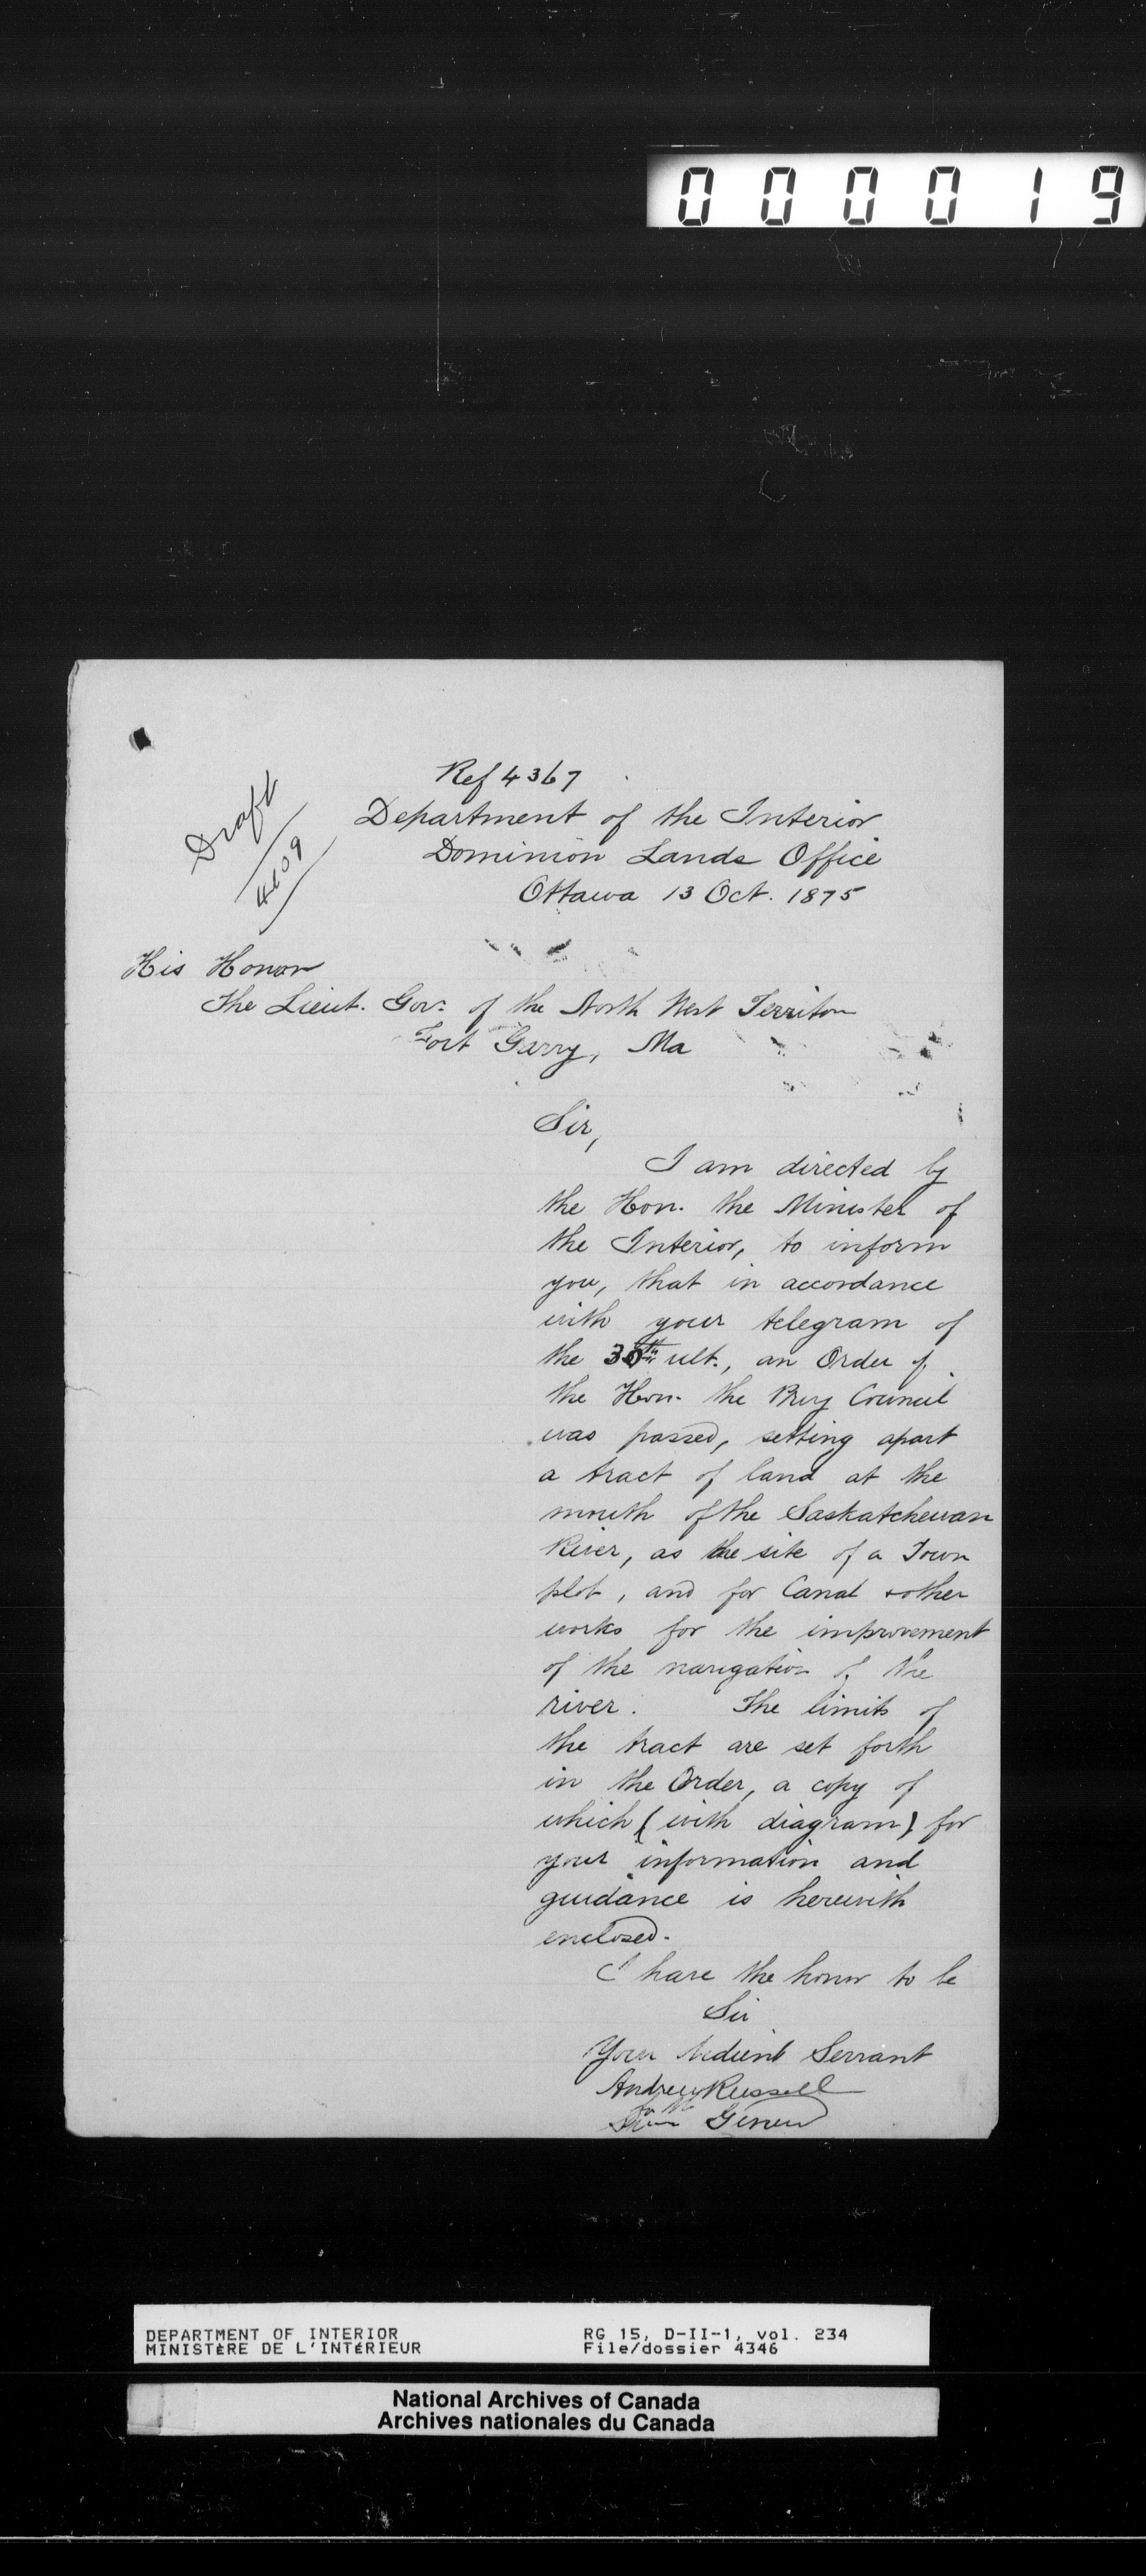 000019
Ref 4367
Draft
4609
Department of the Interior
Dominion Lands Office
Ottawa 13 Oct. 1875
His Honor
The Lieut. Gov. of the North West Territor
Fort Garry, Ma
Sir,
I am directed by
the Hon. the Minister of
the Interior, to inform
you, that in accordance
with your telegram of
the 30th ult., an Order of
the Hon. the Privy Council
was passed, setting apart
a tract of land at the
mouth of the Saskatchewan
River, as the site of a Town
plot, and for Canal & other
works for the improvement
of the navigation of the
river. The limits of
the tract are set forth
in the Order, a copy of
which (with diagram) for
your information and
guidance is herewith
enclosed.
I have the honor to be
Sir
Your Servant
Andrew Russell
DEPARTMENT OF INTERIOR
MINISTÈRE DE L'INTÉRIEUR
RG 15, D-II-1, vol. 234
File/dossier 4346
National Archives of Canada
Archives nationales du Canada